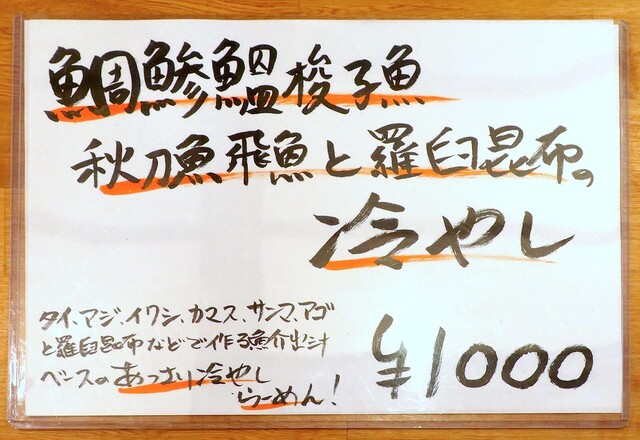 鯛鰺鰮梭子魚
秋刀魚飛魚と羅臼昆布の
冷やし
タイ、アジ、イワシ、カマス、サンマ、アゴ
と羅臼昆布などで作る魚介出汁
ベースのあっさり冷やし
らーめん!
¥1000